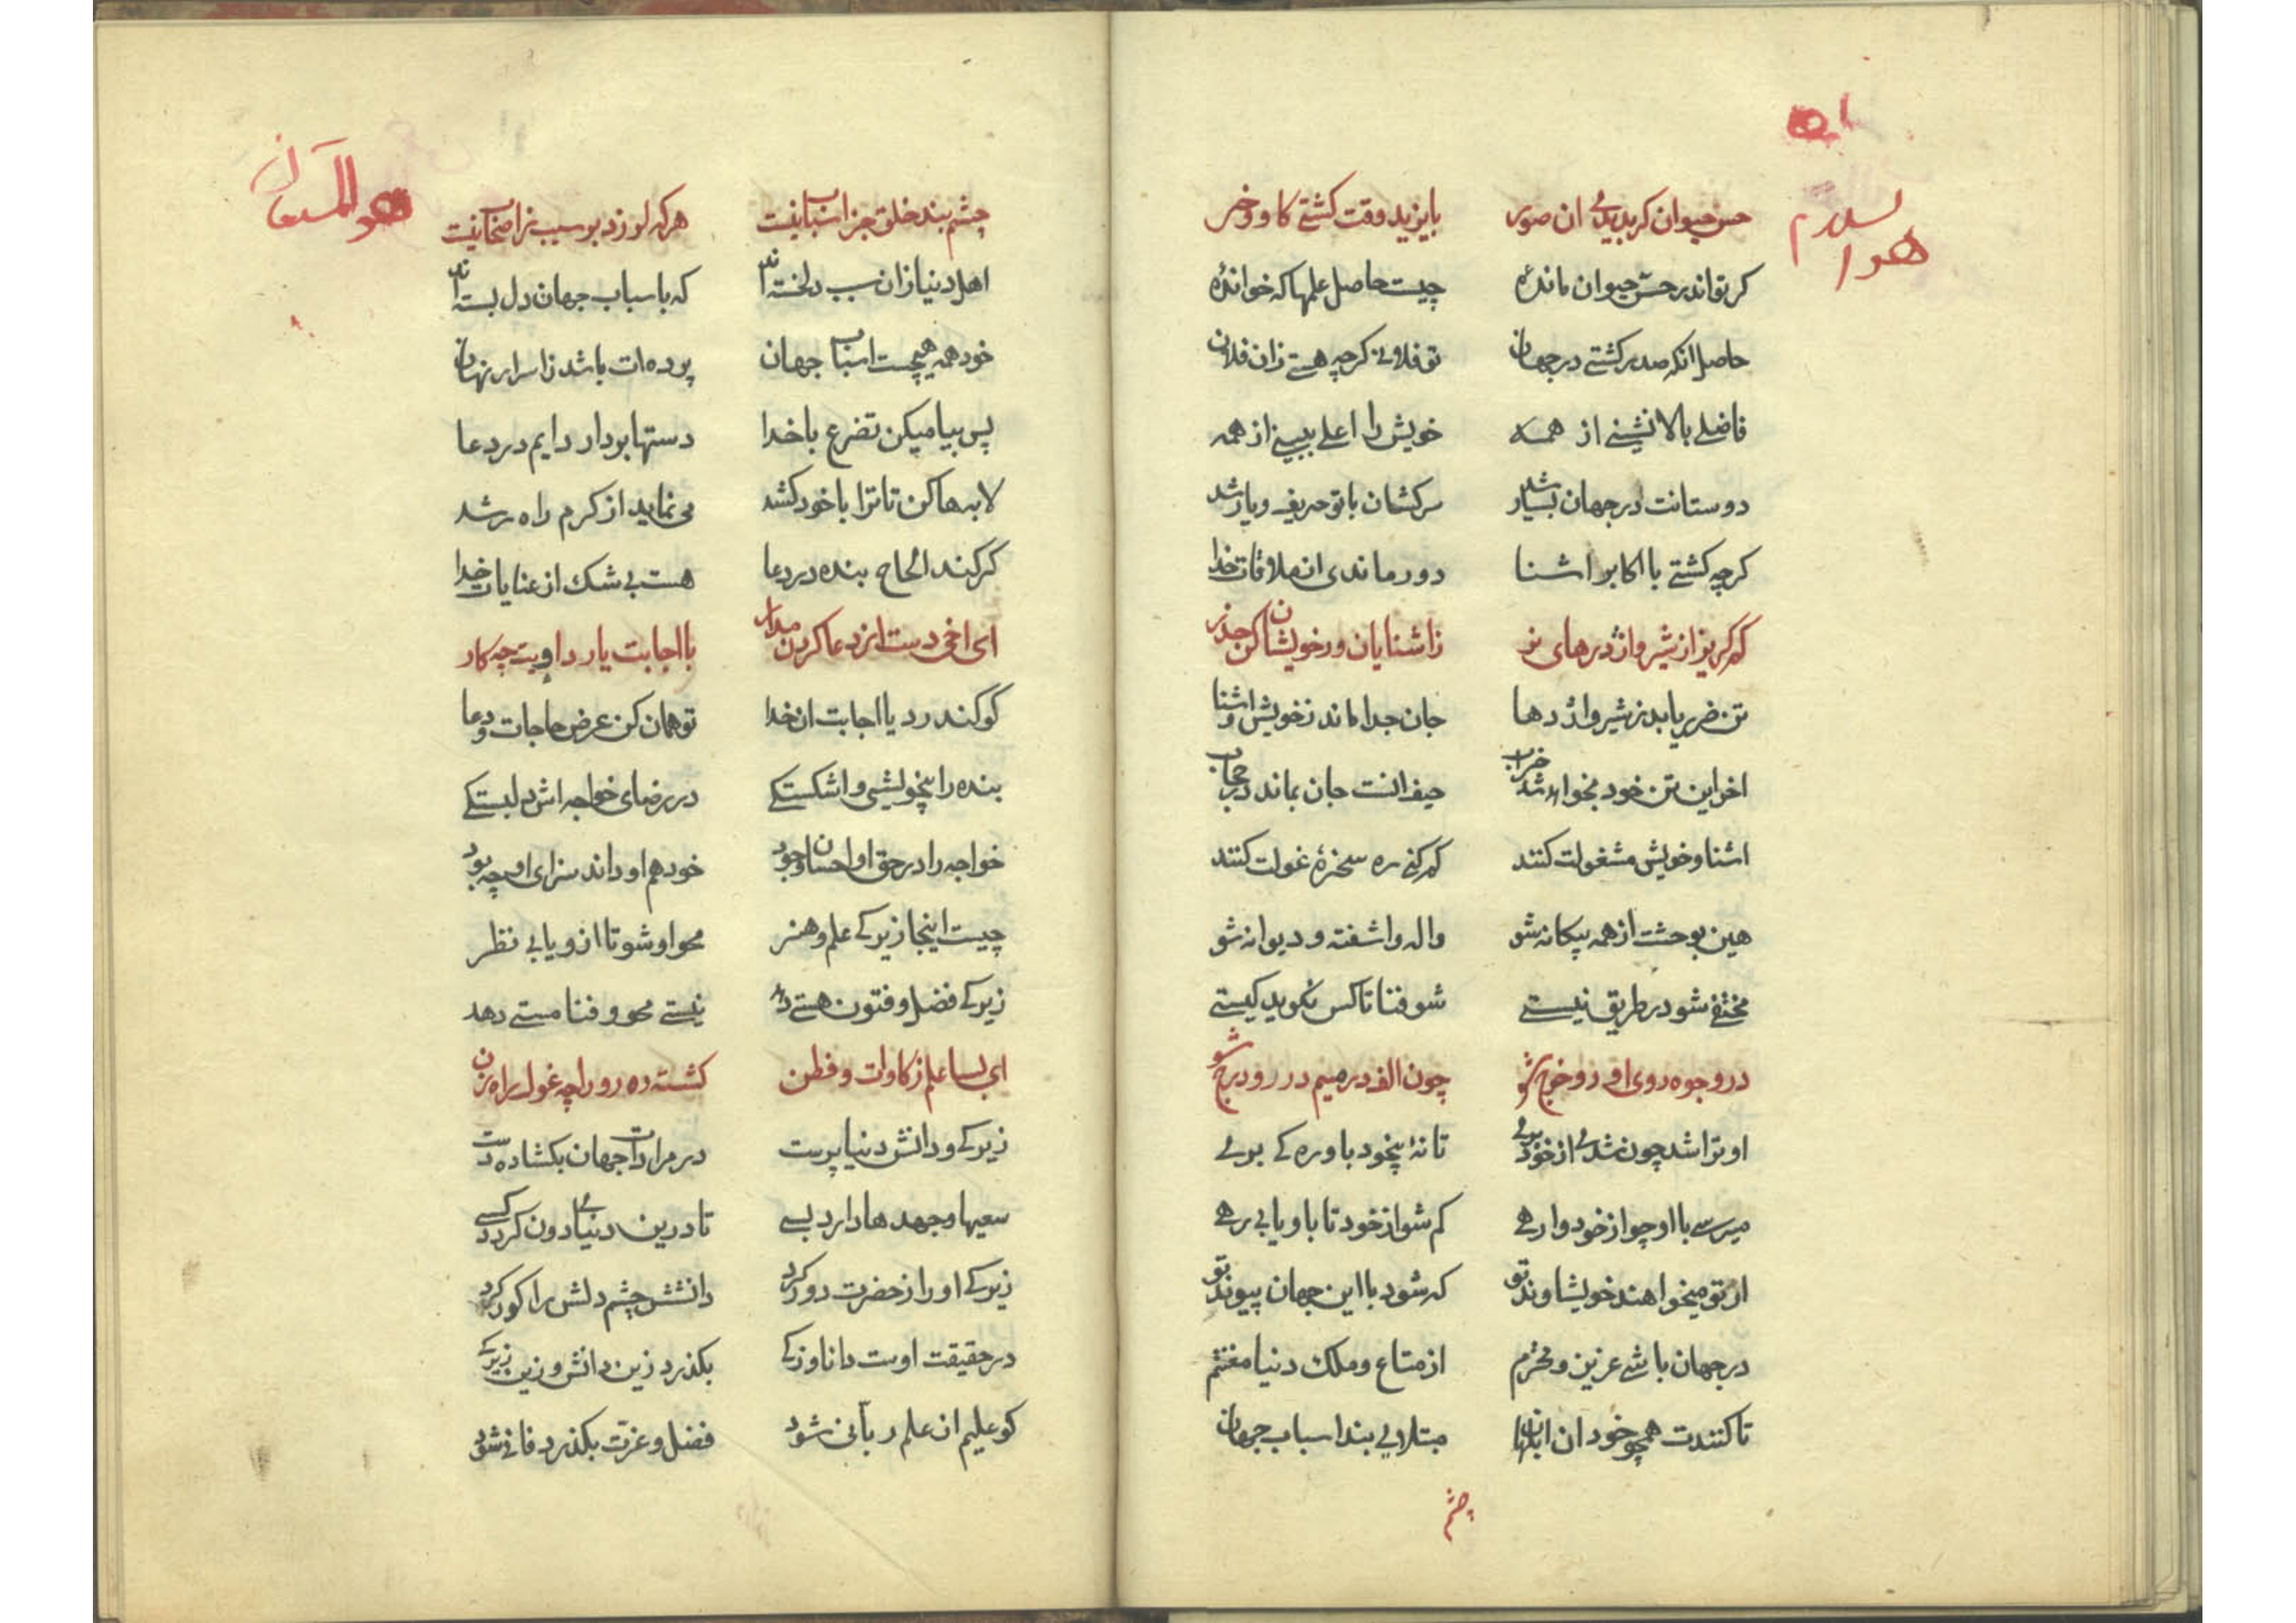 هو السلام
حس حیوان کر بدیدی ان صور بایزید وقت کشتی کاو و خر
کر تو اندر حس حیوان مانده چیست حاصل علمها که خوانده
حاصل انکه صدر کشتی در جهان تو فلانی کرچه هستی زان فلان
فاضلی بالانشینی از همه خویش را اعلی ببینی از همه
دوستانت در جهان بسیار شد سرکشان با تو حریف و یار شد
کرچه کشتی با اکابر اشنا دور ماندی از ملاقات خدا
کم کریز از شیر و اژدرهای نر ز اشنایان و ز خویشان کن حذر
تن ضرر یابد ز شیر و اژدها جان جدا ماند ز خویش و اشنا
اخر این تن خود بخواهد شد خراب حیف انست جان بماند در حجاب
اشنا و خویش مشغولت کنند کم کنی ره سخرهٔ غولت کنند
هین بوحشت از همه بیکانه شو واله و اشفته و دیوانه شو
مختفی شو در طریق نیستی شو فنا تا کس نکوید کیستی
در وجوه روی او رو خرج شو چون الف در میم در رو درج شو
او ترا شد چون شدی از خود بری تا نهٔ بیخود باو ره کی بری
میرسی با او چو از خود وارهی کم شو از خود تا باو یابی رهی
از تو میخواهند خویشاوند تو که شود با این جهان پیوند تو
در جهان باشی عزیز و محترم از متاع و ملک دنیا مغتنم
تا کنندت همچو خود ان ابلهان مبتلای بند اسباب جهان
چشم
هو المستعان
چشم بند خلق جز اسباب نیست هر که لرزد بر سبب ز اصحاب نیست
اهل دنیا زان سبب دلخسته‌اند که باسباب جهان دل بسته‌اند
خود همه هیچست اسباب جهان پرده‌ات باشد ز اسرار نهان
پس بیا میکن تضرع با خدا دستها بردار دایم در دعا
لابه‌ها کن تا ترا با خود کشد می نماید از کرم راه رشد
کر کند الحاح بنده در دعا هست بی شک از عنایات خدا
ای اخی دست از دعا کردن مدار با اجابت یا رد اویت چه کار
کو کند رد یا اجابت ان خدا تو همان کن عرض حاجات و دعا
بنده را بیخویشی و اشکستکی در رضای خواجه‌اش دلبستکی
خواجه را در حق او احسان و جود خود هم او داند سزای او چه بود
چیست اینجا زیرکی علم و هنر محو او شو تا ازو یابی نظر
زیرکی فضل و فتون هستی دهد نیستی محو و فنا مستی دهد
ای بسا علم و زکاوات و فطن کشته ره رو را چو غول راه زن
زیرکی و دانش دنیا پرست در مرادات جهان بکشاده دست
سعیها و جهدها دارد بسی تا درین دنیای دون کردد کسی
زیرکی او را ز حضرت دور کرد دانشش چشم دلش را کور کرد
در حقیقت اوست دانا و زکی بکذرد زین دانش و زین زیرکی
کو علیم از علم ربانی شود فضل و عزت بکذرد فانی شود